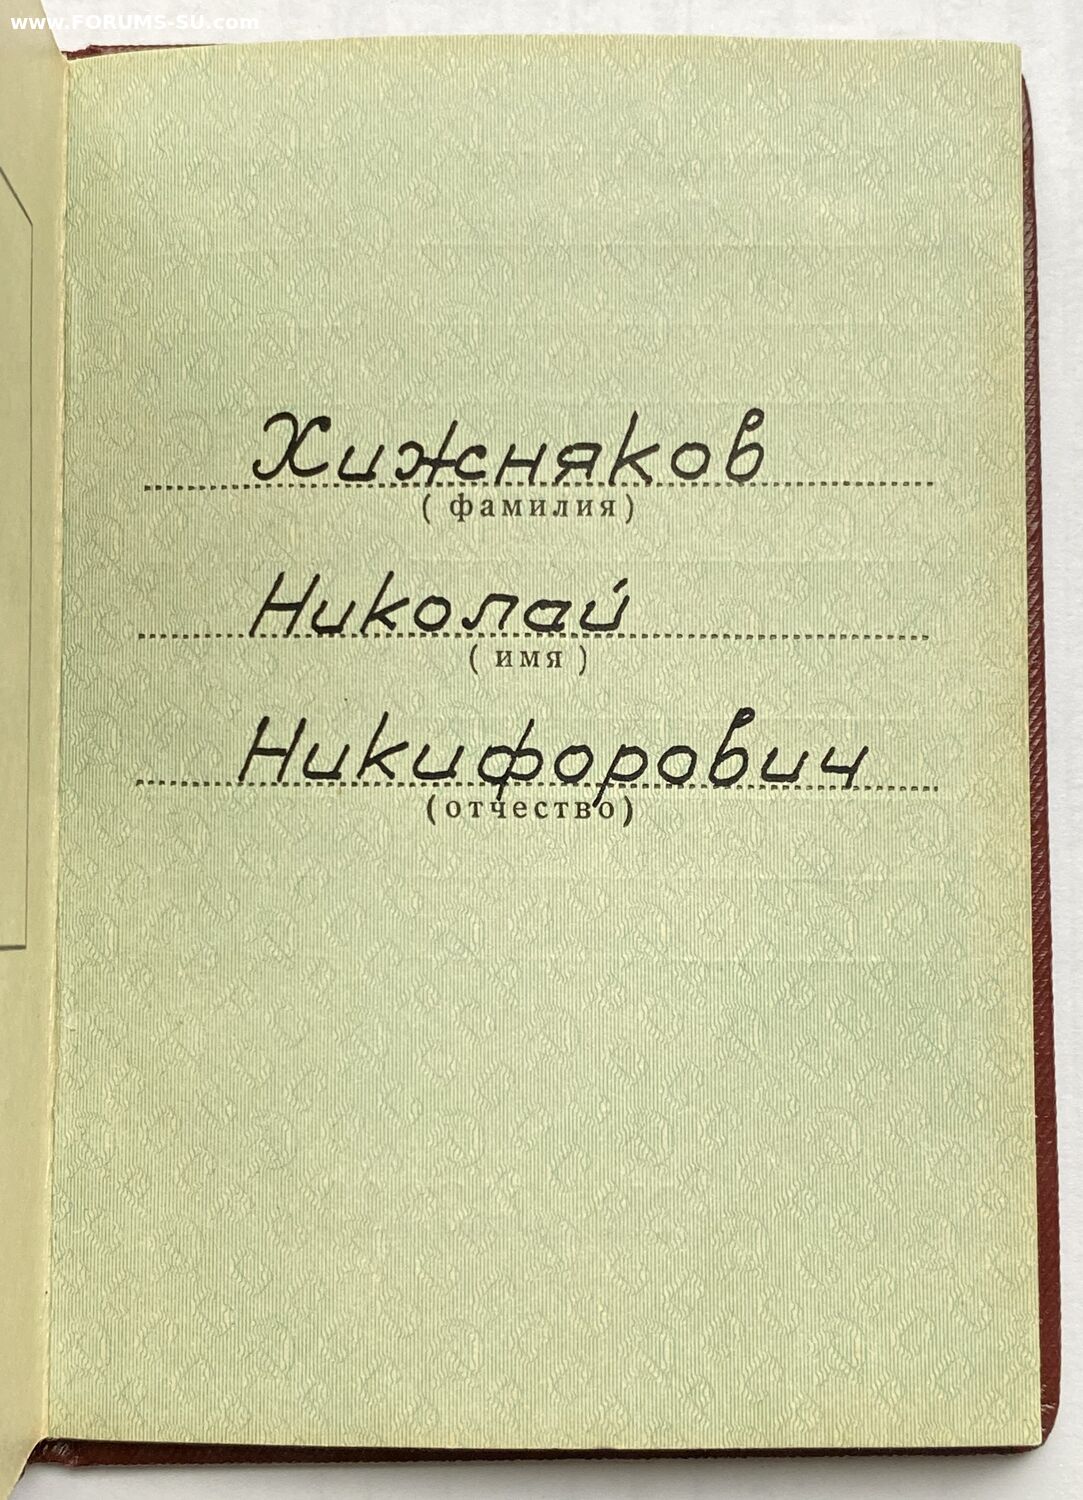 www.FORUMS-SU.com
Хижняков
( фамилия)
Николай
( имя )
Никифорович
(отчество)